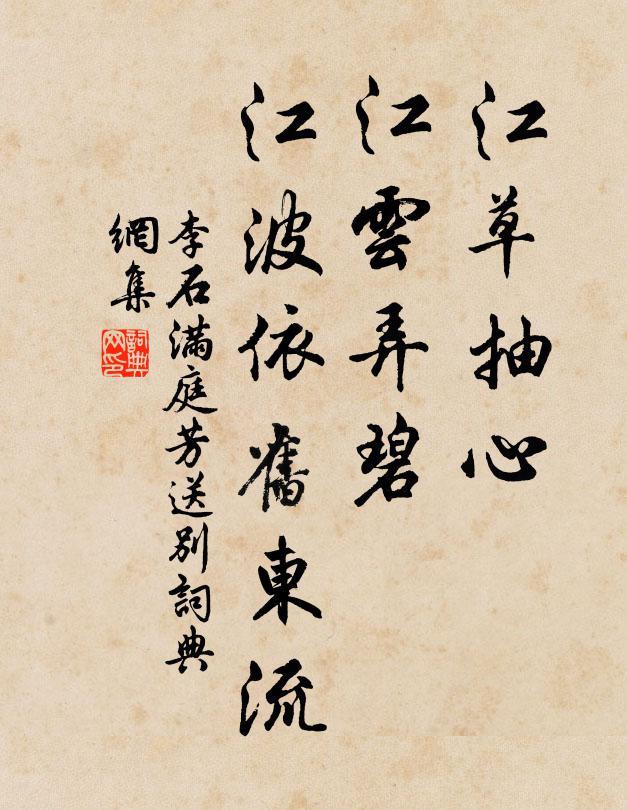 江草抽心
江雲弄碧
江波依舊東流
李石滿庭芳送別詞典
網集
詞典網印